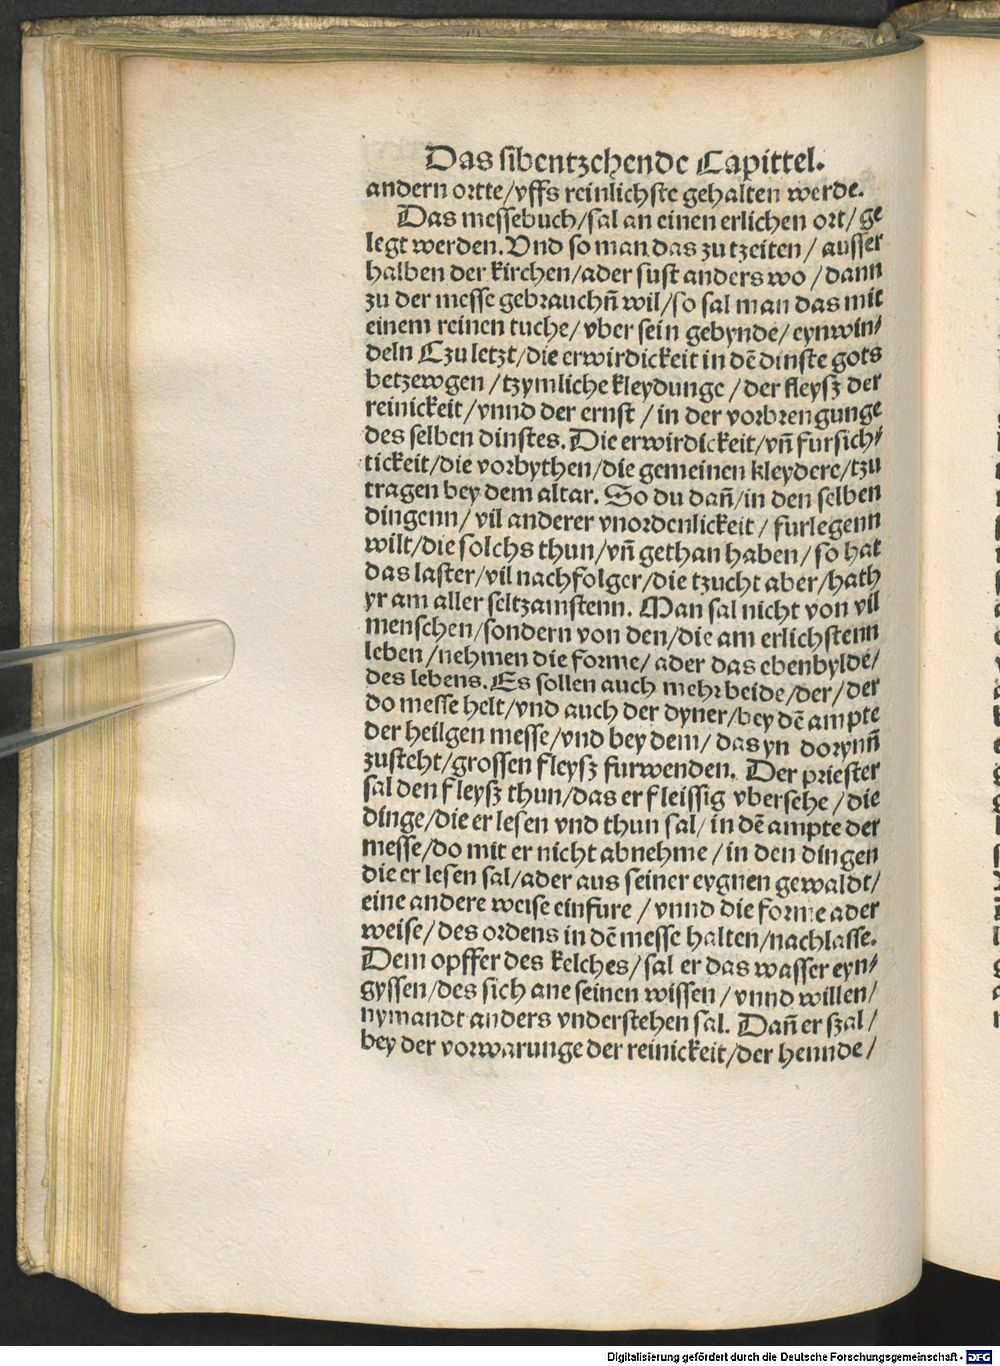 Das sibentzehende Capittel.
andern ortte/vffs reinlichste gehalten werde.
Das messebuch/sal an einen erlichen ort/ge
legt werden. Vnd so man das zu tzeiten/ ausser
halben der kirchen/ader sust anders wo /dann
zu der messe gebrauchñ wil/so sal man das mit
einem reinen tuche/vber sein gebynde/eynwin/
deln Czu letzt/die erwirdickeit in dē dinste gots
betzewgen /tzymliche kleydunge /der fleysz der
reinickeit/vnnd der ernst /in der vorbrengunge
des selben dinstes. Die erwirdickeit/vñ fursich/
tickeit/die vorbythen/die gemeinen kleydere/tzu
tragen bey dem altar. So du dañ/in den selben
dingenn/ vil anderer vnordenlickeit / furlegenn
wilt/die solchs thun/vñ gethan haben/ so hat
das laster/vil nachfolger/die tzucht aber/hath
yr am aller seltzamstenn. Man sal nicht von vil
menschen/sondern von den/die am erlichstenn
leben /nehmen die forme/ ader das ebenbylde/
des lebens. Es sollen auch mehr beide/der/der
do messe helt/vnd auch der dyner/bey dē ampte
der heilgen messe/vnd bey dem/ das yn dorynñ
zusteht/grossen fleysz furwenden. Der priester
sal den fleysz thun/das er fleissig vbersehe /die
dinge/die er lesen vnd thun sal/ in dē ampte der
messe/do mit er nicht abnehme /in den dingen
die er lesen sal/ader aus seiner eygnen gewaldt/
eine andere weise einfure /vnnd die forme ader
weise/des ordens in dē messe halten/nachlasse.
Dem opffer des kelches/ sal er das wasser eyn/
gyssen/des sich ane seinen wissen / vnnd willen/
nymandt anders vnderstehen sal. Dañ er szal /
bey der vorwarunge der reinickeit/der hennde /
Digitalisierung gefördert durch die Deutsche Forschungsgemeinschaft - DFG